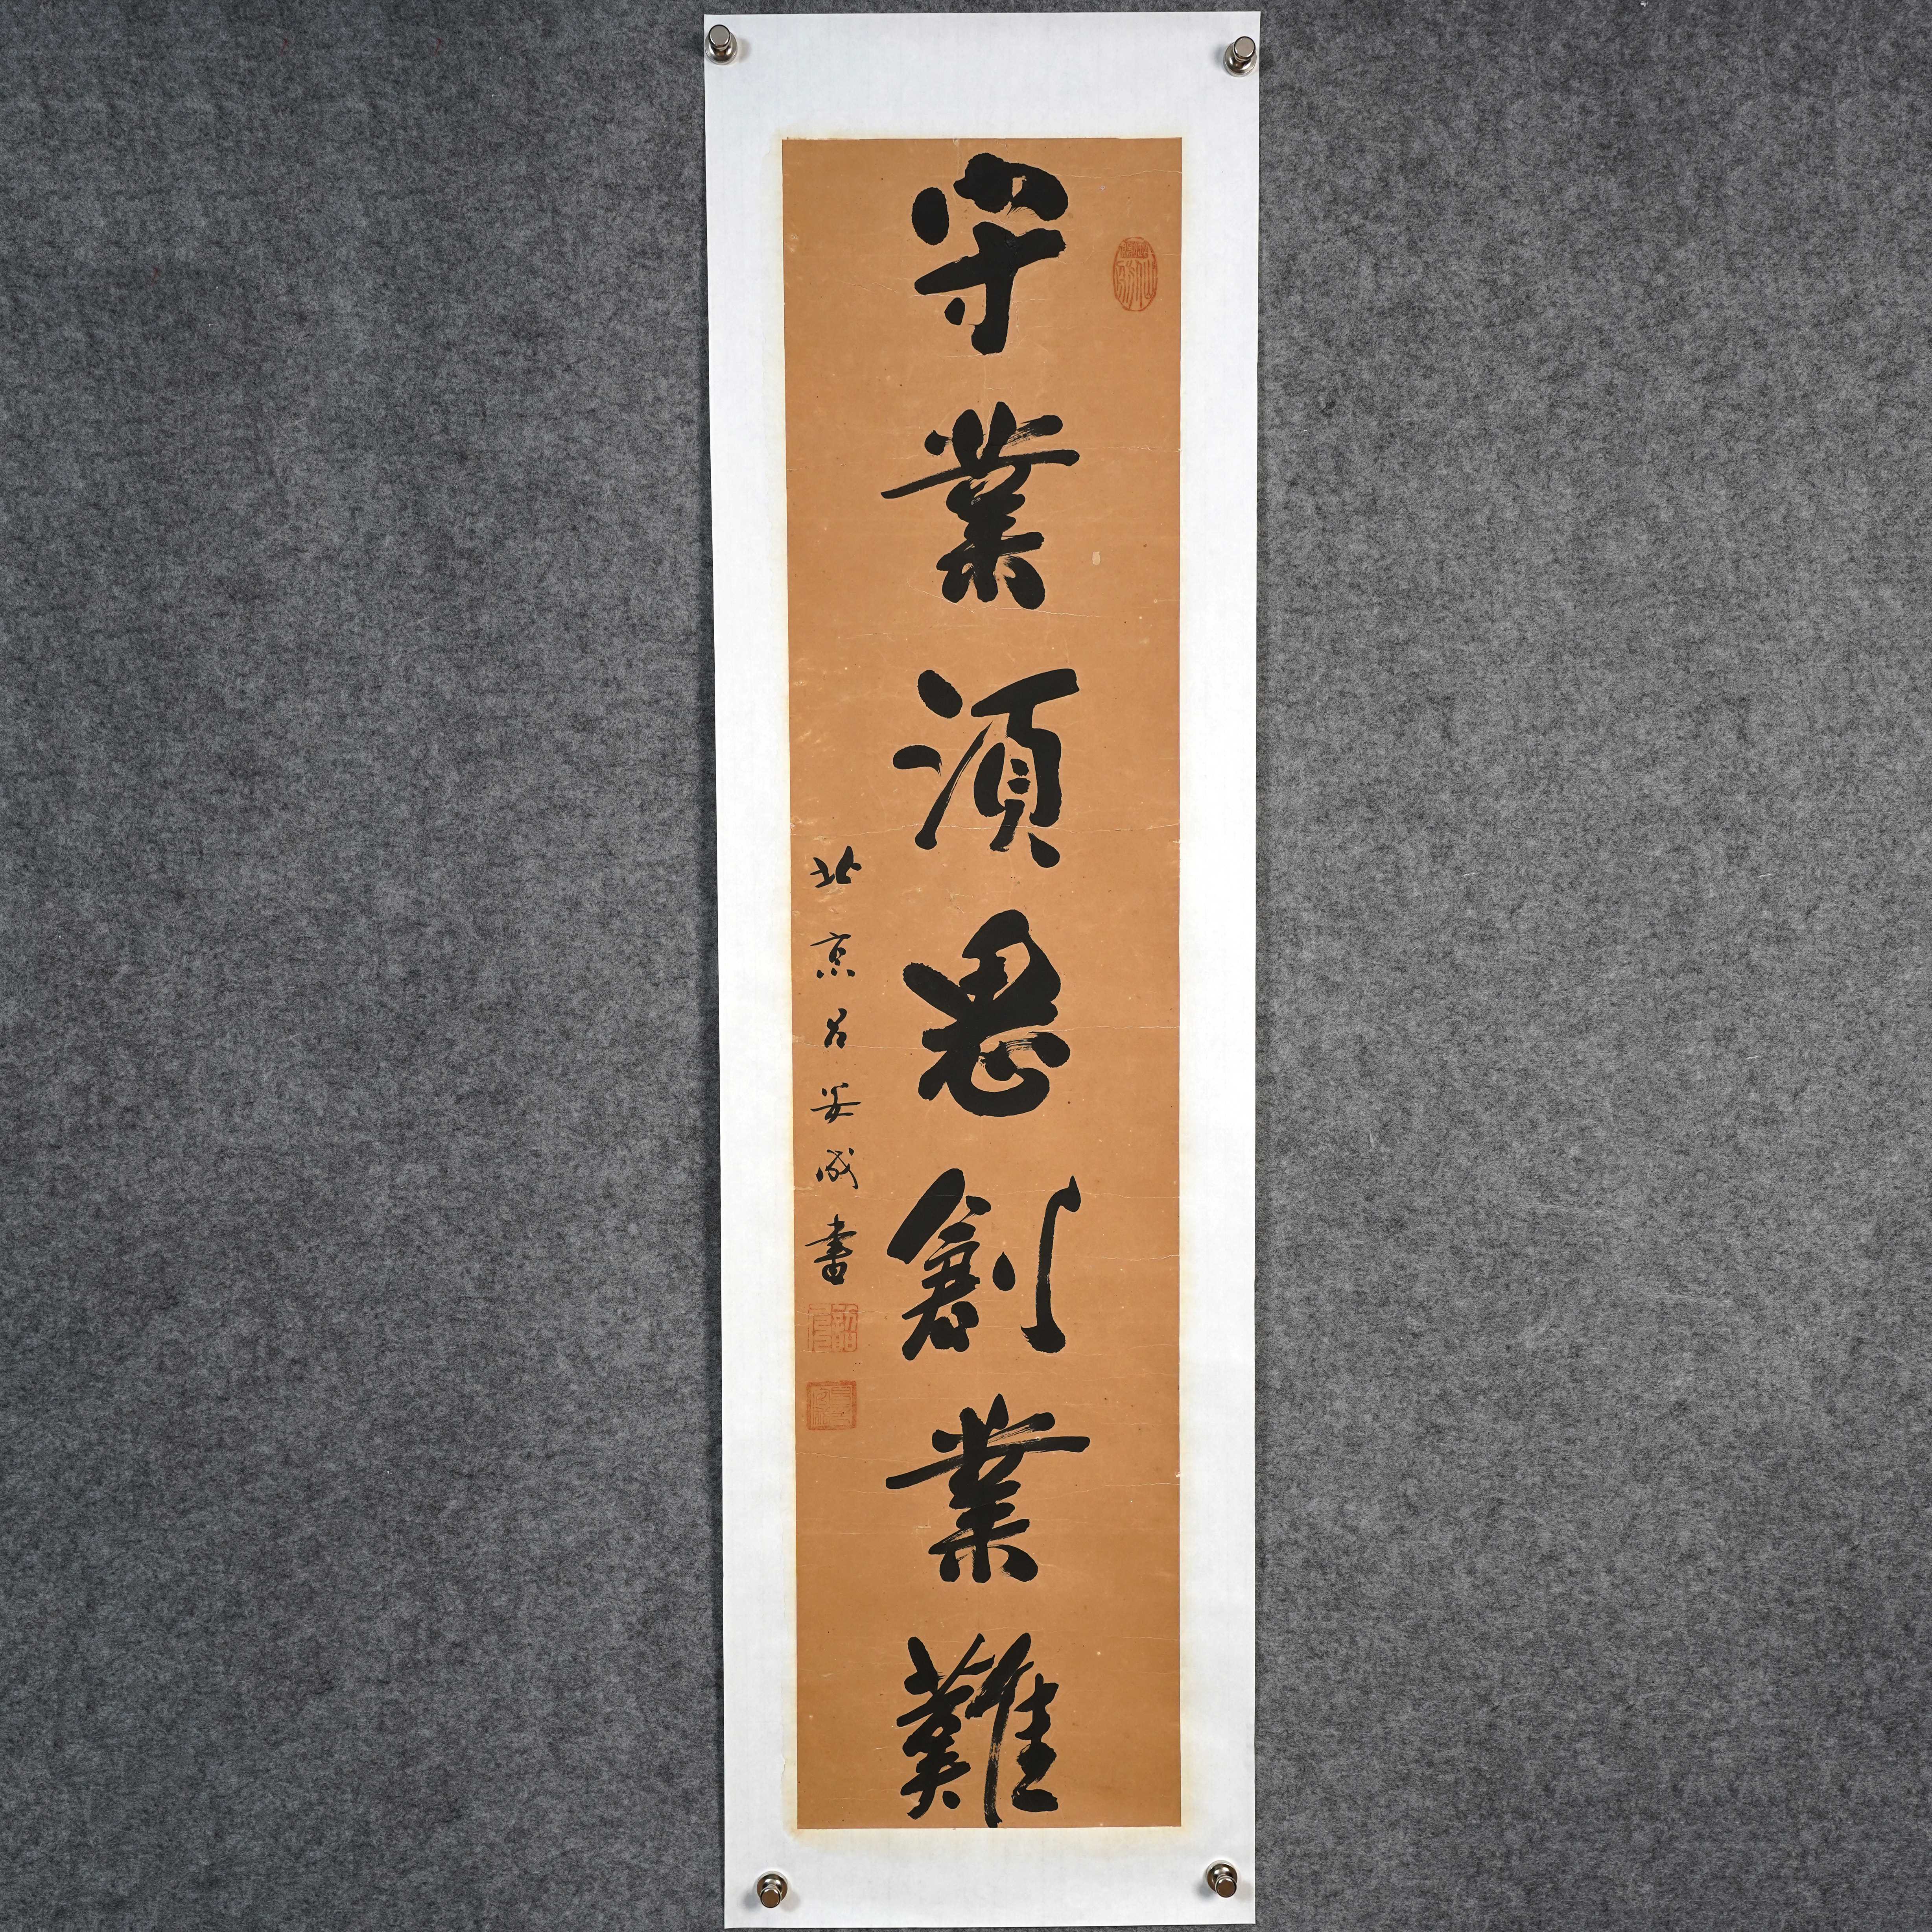 守業須思創業難
北京呂安成書